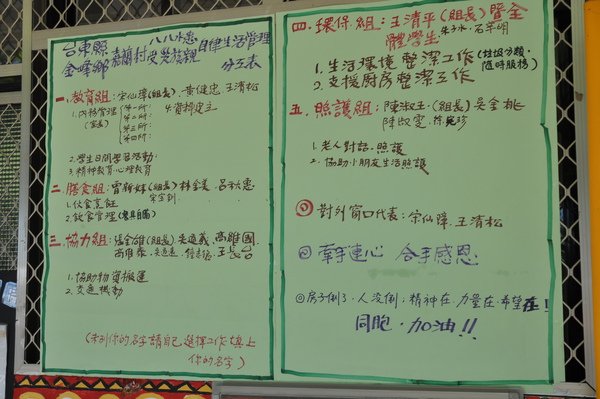 台東縣 八八水患
金峰鄉嘉蘭村受災族親自律生活管理
分工表
一.教育組:宋仙璋(組長).黃健忠 王清松
1.內務管理(第一所: 4.資料建立
(室長) 第二所:
第三所:
第四所:
2.學生日間學習活動:
3.精神教育.心理教育
二.膳食組:雷新妹(組長)林金美.呂秋惠
1.伙食烹飪
2.飲食管理(傳具區)
三.協力組:張金雄(組長)朱通義.高雄國.
高唯泰. 王長台
1.協助物資搬運
2.交通機動
(未列你的名字請自己選擇工作填上
你的名字)
四.環保組:王清平(組長)暨全
體學生 朱子水.石华明
1.生活環境整潔工作(垃圾分類.
2.支援厨房整潔工作 隨時服務)
五.照護組:陳淑玉(組長)吳金桃
陳敬雯.徐苑珍
1.老人對話.照護
2.協助小朋友生活照護
◎對外窗口代表:宋仙璋.王清松
◎牽手連心 合手感恩
◎房子倒了.人没倒.精神在.力量在.希望在!
同胞.加油!!